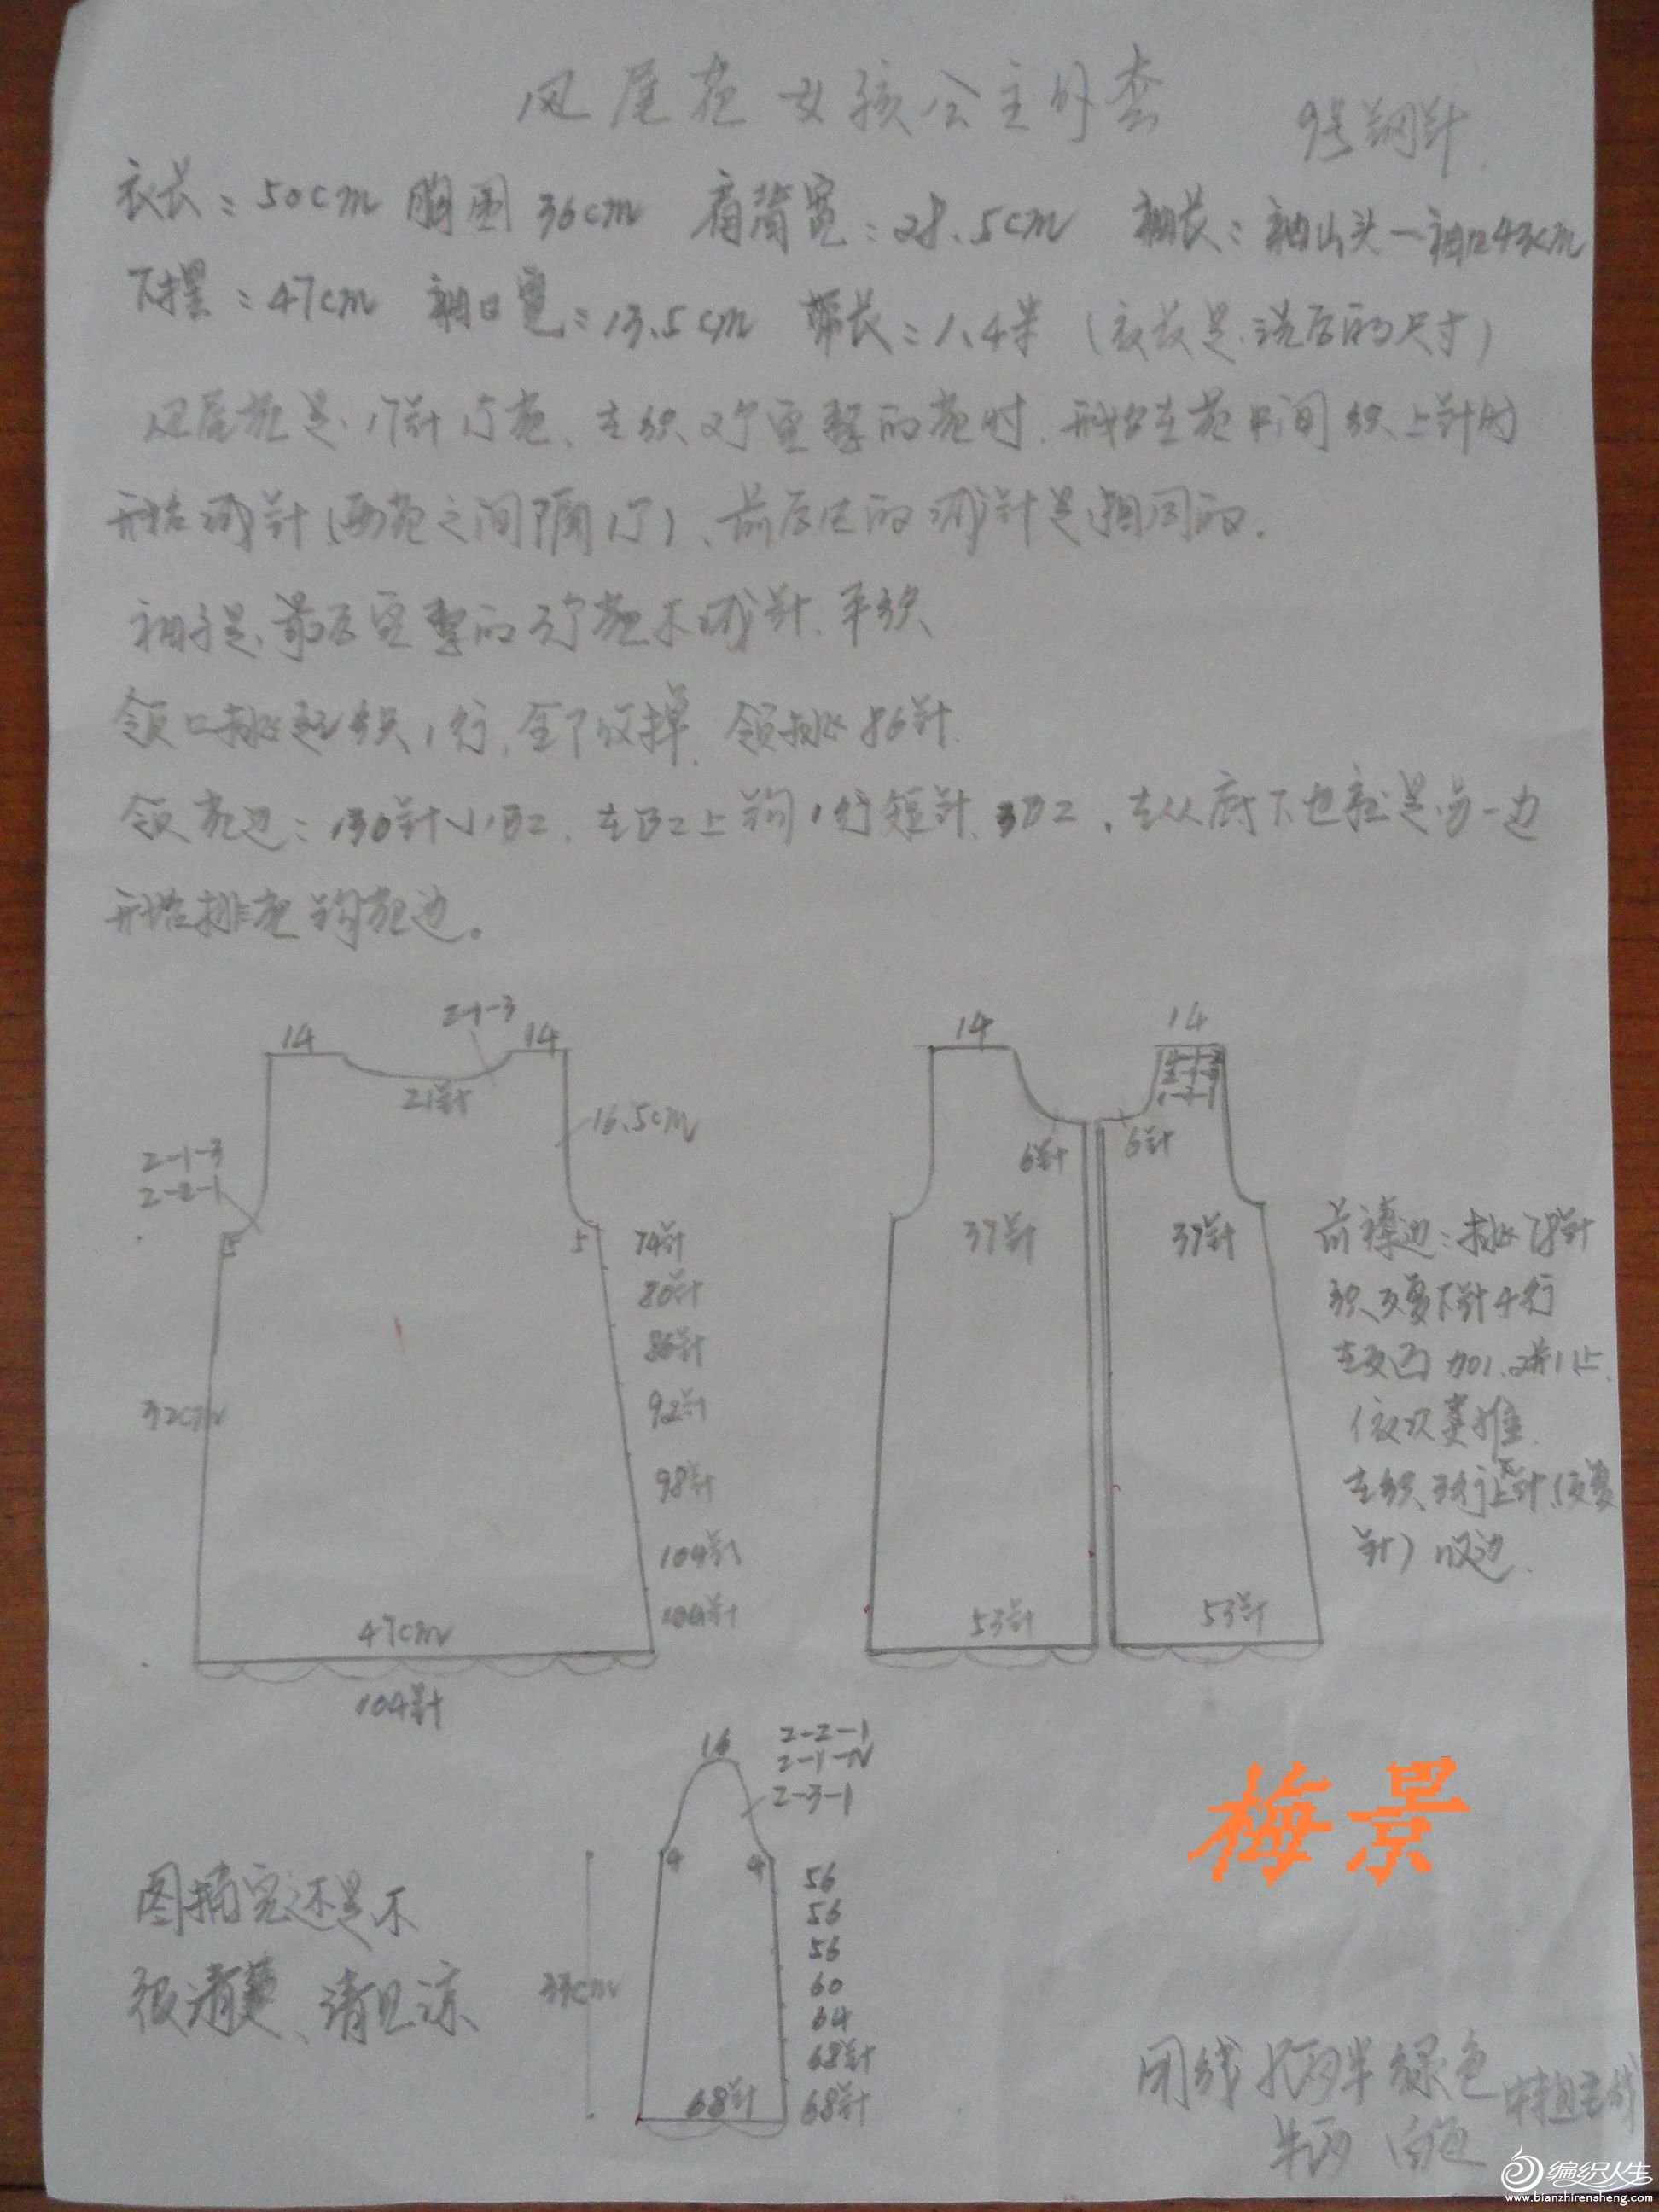 凤尾花女孩公主外套
9号钢针
衣长=50cm 胸围36cm 肩背宽=28.5cm 袖长=袖山头一袖口43cm
下摆=47cm 袖口宽=13.5cm 带长=1.4米(衣放是洗后的尺寸)
凤尾花是17针1个花、在织2个完整的花时、开始在花中间织上针时
开始减针(两花之间隔1个)、前后片的减针是相同的.
袖子是最后完整的3个花不减针、平织、
领口挑起织1行,全下收掉.领挑86针.
领花边:130针小BZ.在BZ上钩1行短针.BZ.在从底下也就是另一边
开始排花钩花边。
14
2-1-3
14
21针
16.5cm
2-1-3
2-2-1
5
5
32cm
74针
80针
86针
92针
98针
104针
104针
47cm
104针
14
14
6针
6针
37针
37针
53针
53针
前襟边:挑78针
织反复下针4行
在反面加1.2并1上.
依次类推.
针)收边.
16
2-2-1
2-3-1
4
4
33cm
56
56
56
60
64
68针
68针
68针
图搞完还是不
很清楚、请见谅
梅景
用线 两半绿色
半两 白色
编织人生
www.bianzhirensheng.com